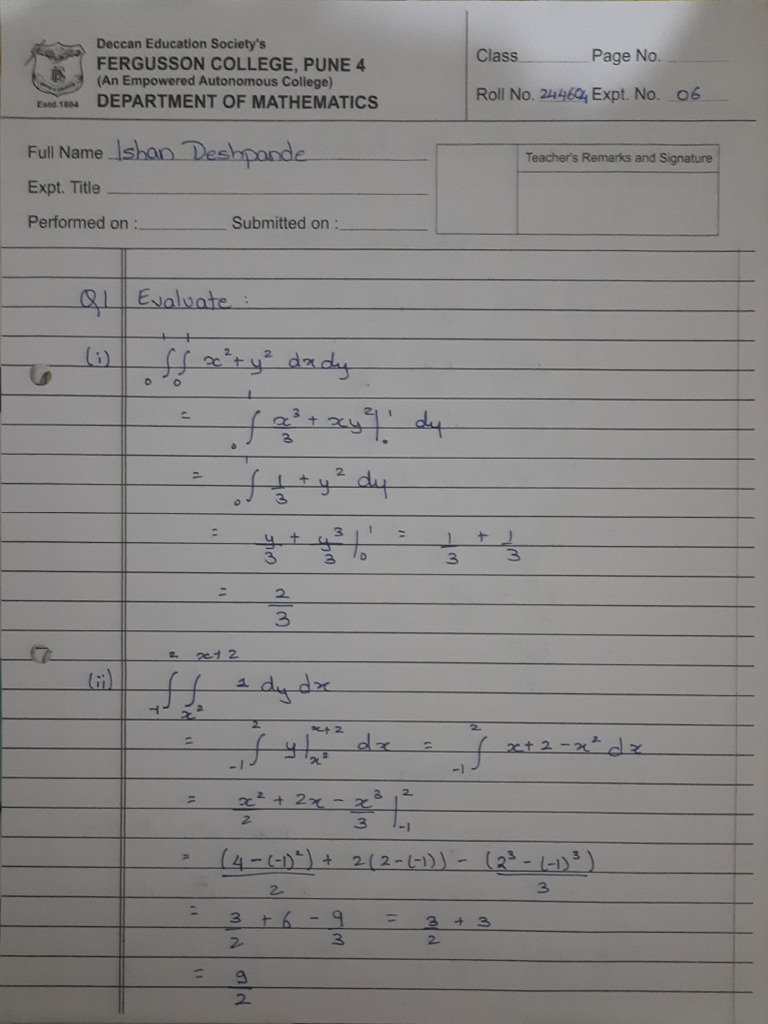 Deccan Education Society's
FERGUSSON COLLEGE, PUNE 4
(An Empowered Autonomous College)
DEPARTMENT OF MATHEMATICS
Estd.1884
Class Page No.
Roll No. 244604 Expt. No. 06
Full Name Ishan Deshpande
Expt. Title
Performed on : Submitted on :
Teacher's Remarks and Signature
Q1 Evaluate :
(i) ∫₀¹ ∫₀¹ x² + y² dx dy
= ∫₀¹ x³/3 + xy² |₀¹ dy
= ∫₀¹ 1/3 + y² dy
= y/3 + y³/3 |₀¹ = 1/3 + 1/3
= 2/3
(ii) ∫₋₁² ∫_{x²}^{x+2} 1 dy dx
= ∫₋₁² y |_{x²}^{x+2} dx = ∫₋₁² x + 2 - x² dx
= x²/2 + 2x - x³/3 |₋₁²
= (4-(-1)²)/2 + 2(2-(-1)) - (2³-(-1)³)/3
= 3/2 + 6 - 9/3 = 3/2 + 3
= 9/2